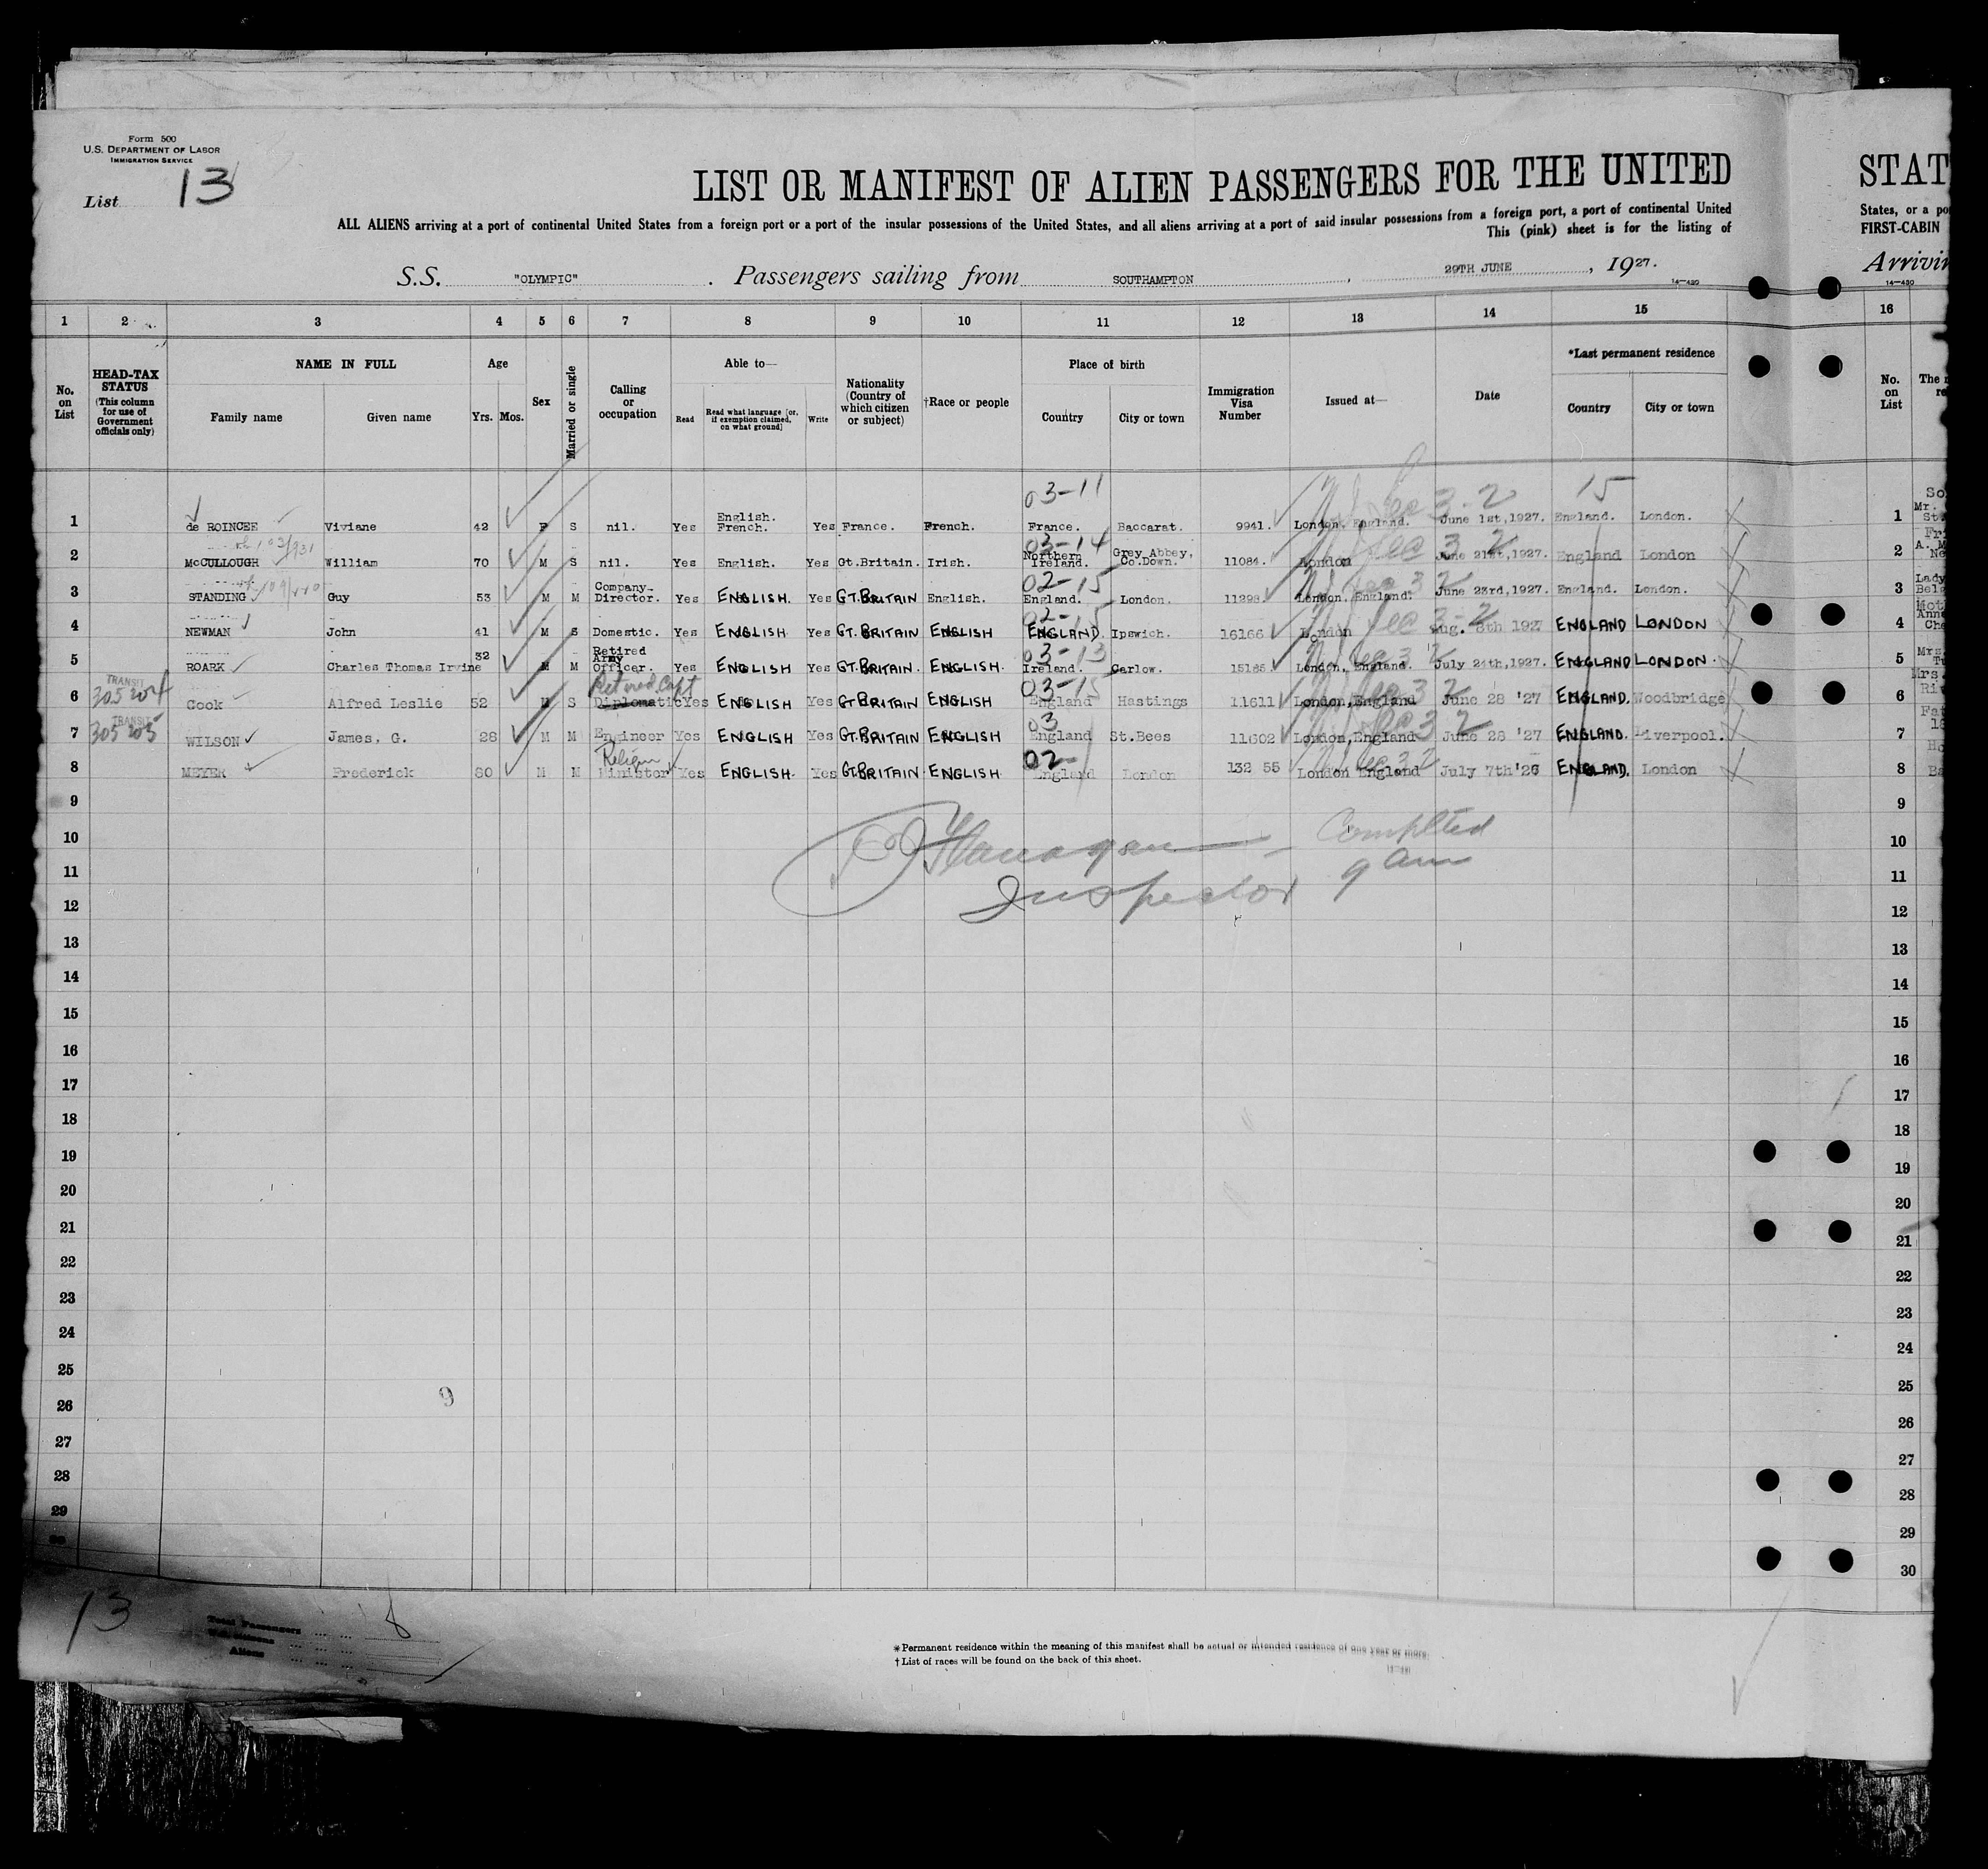 Form 500
U.S. DEPARTMENT OF LABOR
IMMIGRATION SERVICE
List 13
LIST OR MANIFEST OF ALIEN PASSENGERS FOR THE UNITED
STAT
ALL ALIENS arriving at a port of continental United States from a foreign port or a port of the insular possessions of the United States, and all aliens arriving at a port of said insular possessions from a foreign port, a port of continental United
States, or a po
This (pink) sheet is for the listing of
FIRST-CABIN
S.S. "OLYMPIC" . Passengers sailing from SOUTHAMPTON , 29TH JUNE , 1927.
Arrivin
14-480
14-480
1 2 3 4 5 6 7 8 9 10 11 12 13 14 15 16
No. on List
HEAD-TAX STATUS (This column for use of Government officials only)
NAME IN FULL
Family name Given name
Age
Yrs. Mos.
Sex
Married or single
Calling or occupation
Able to—
Read Read what language [or, if exemption claimed, on what ground] Write
Nationality (Country of which citizen or subject)
†Race or people
Place of birth
Country City or town
Immigration Visa Number
Issued at—
Date
*Last permanent residence
Country City or town
No. on List
03-11 15
1 de ROINCEE Viviane 42 F S nil. Yes English. French. Yes France. French. France. Baccarat. 9941. London, England. June 1st,1927. England. London. 1
03-14
2 McCULLOUGH William 70 M S nil. Yes English. Yes Gt.Britain. Irish. Northern Ireland. Grey Abbey, Co.Down. 11084. London June 21st,1927. England London 2
02-15
3 STANDING Guy 53 M M Company Director. Yes ENGLISH. Yes GT.BRITAIN English. England. London. 11298. London, England. June 23rd,1927. England. London. 3
02-15
4 NEWMAN John 41 M S Domestic. Yes ENGLISH Yes GT.BRITAIN ENGLISH ENGLAND. Ipswich. 16166 London Aug. 8th 192 ENGLAND LONDON 4
03-13
5 ROARK Charles Thomas Irvine 32 M M Retired Army Officer. Yes ENGLISH Yes GT.BRITAIN. ENGLISH. Ireland. Carlow. 15185. London, England. July 24th,1927. ENGLAND LONDON. 5
TRANSIT
305204
Retired Capt
03-15
6 Cook Alfred Leslie 52 M S Diplomatic Yes ENGLISH Yes GT BRITAIN ENGLISH England Hastings 11611 London,England June 28 '27 ENGLAND. Woodbridge 6
TRANSIT
305205
03
7 WILSON James. G. 28 M M Engineer Yes ENGLISH Yes GT.BRITAIN ENGLISH England St.Bees 11602 London,England June 28 '27 ENGLAND. Liverpool. 7
Religion
02-
8 MEYER Frederick 80 M M Minister Yes ENGLISH. Yes GT.BRITAIN ENGLISH England London 132 55 London England July 7th'26 ENGLAND. London 8
9 9
10 10
11 11
12 12
13 13
14 14
15 15
16 16
17 17
18 18
19 19
20 20
21 21
22 22
23 23
24 24
25 25
26 26
27 27
28 28
29 29
30
Flanagan
Inspector
Complted
9 am
9
13
Total Passengers ... ... 8
Aliens ... ...
*Permanent residence within the meaning of this manifest shall be actual or intended residence of one year or more.
†List of races will be found on the back of this sheet.